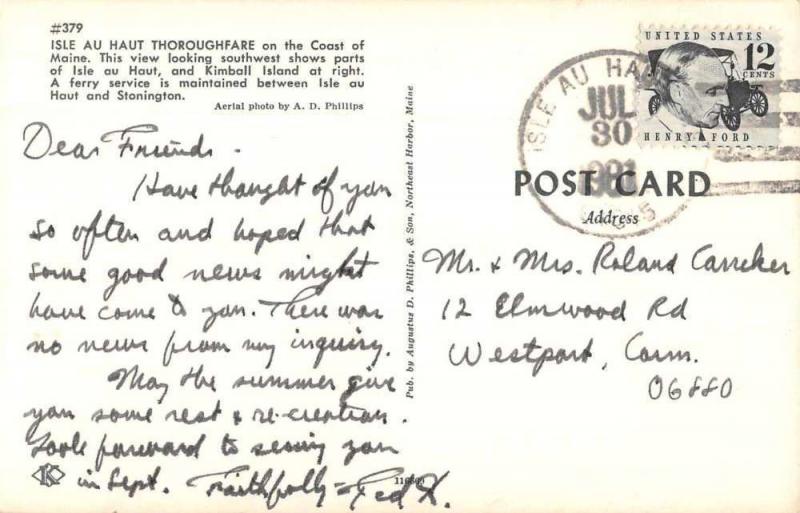 #379
ISLE AU HAUT THOROUGHFARE on the Coast of
Maine. This view looking southwest shows parts
of Isle au Haut, and Kimball Island at right.
A ferry service is maintained between Isle au
Haut and Stonington.
Aerial photo by A. D. Phillips
Dear Friends -
Have thought of you
so often and hoped that
some good news might
have come to you. There was
no news from my inquiry.
May the summer give
you some rest & re-creation.
Look forward to seeing you
in Sept. Faithfully - Ted K.
K
116869
Pub. by Augustus D. Phillips, & Son, Northeast Harbor, Maine
UNITED STATES
12
CENTS
HENRY FORD
ISLE AU HA
JUL
30
POST CARD
Address
Mr. & Mrs. Roland Carreker
12 Elmwood Rd
Westport, Conn.
06880